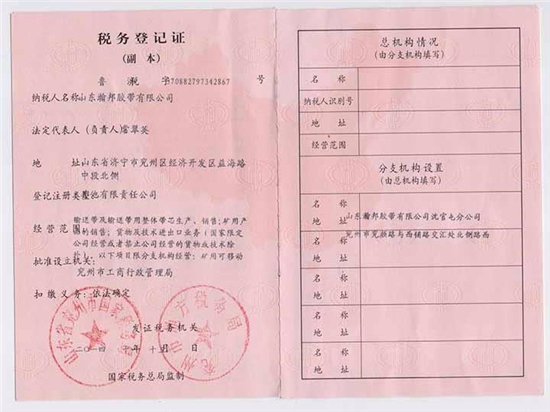 税务登记证
(副 本)
鲁 税 字370882797342867 号
纳税人名称山东瀚邦胶带有限公司
法定代表人(负责人)席翠英
地 址 山东省济宁市兖州区经济开发区益海路
中段北侧
登记注册类型其他有限责任公司
输送带及输送带用整体带芯生产、销售;矿用产
经营范围
品的销售;货物及技术进出口业务(国家限定
公司经营或者禁止公司经营的货物或技术除
外)。以下项目限分支机构经营:矿用可移动
批准设立机关:
兖州市工商行政管理局
扣缴义务:依法确定
发证税务机关
二〇一四 年 十月 日
国家税务总局监制
总机构情况
(由分支机构填写)
名 称
纳税人识别号
地 址
经营范围
分支机构设置
(由总机构填写)
名 称 山东瀚邦胶带有限公司沈官屯分公司
地 址 兖州市兖颜路与西铺路交汇处北侧路西
名 称
地 址
名 称
地 址
名 称
地 址